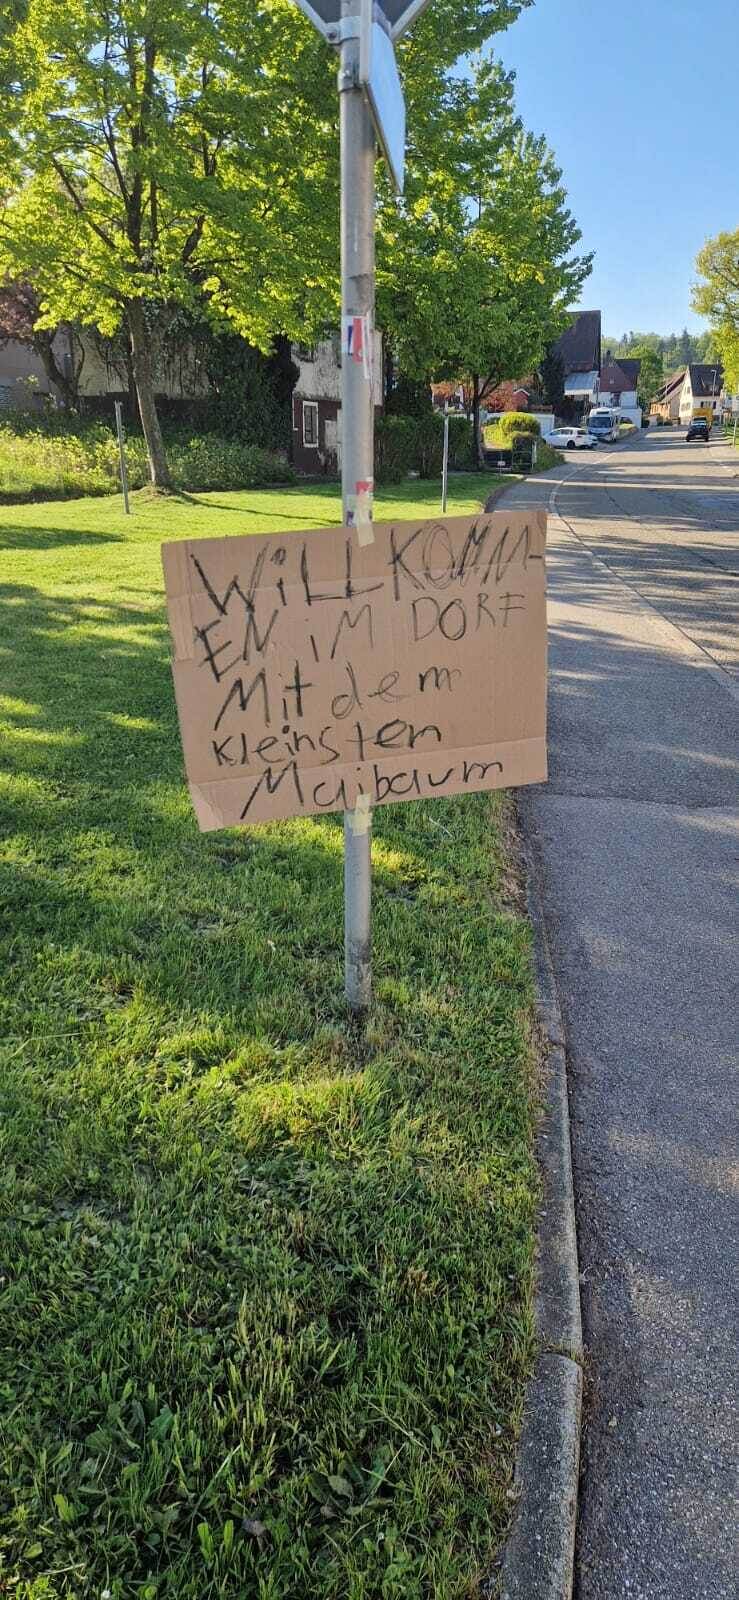 WiLLKOMM-
EN iM DORF
Mit dem
kleinsten
Maibaum